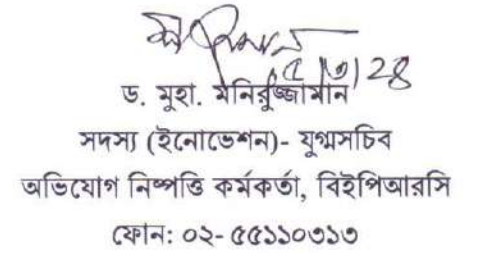 ড. মুহা. মনিরুজ্জামান
সদস্য (ইনোভেশন)- যুগ্মসচিব
অভিযোগ নিষ্পত্তি কর্মকর্তা, বিইপিআরসি
ফোন: ০২- ৫৫১১০৩১৩